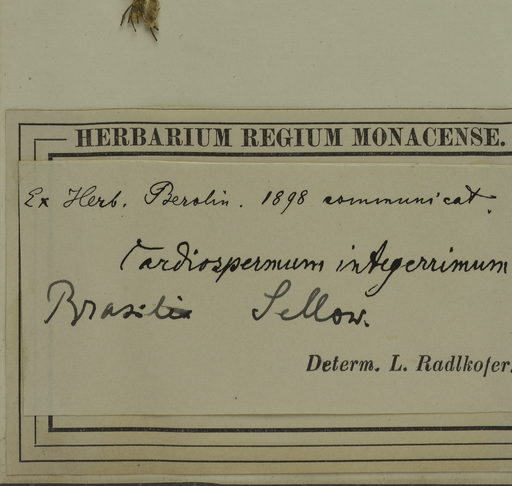 HERBARIUM REGIUM MONACENSE.
Ex Herb. Berolin. 1898 communicat.
Cardiospermum integerrimum
Brasilia Sellow.
Determ. L. Radlkofer.